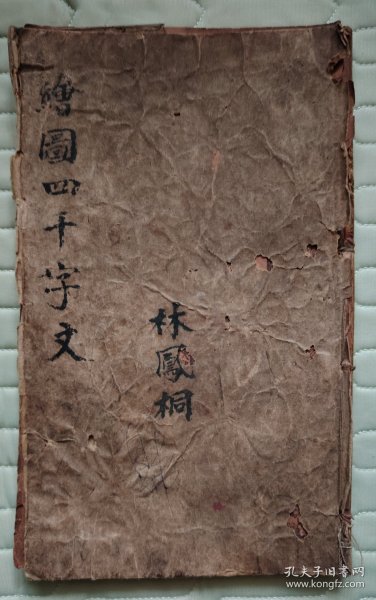 繪圖四千字文
林鳳桐
孔夫子旧书网
www.kongfz.com